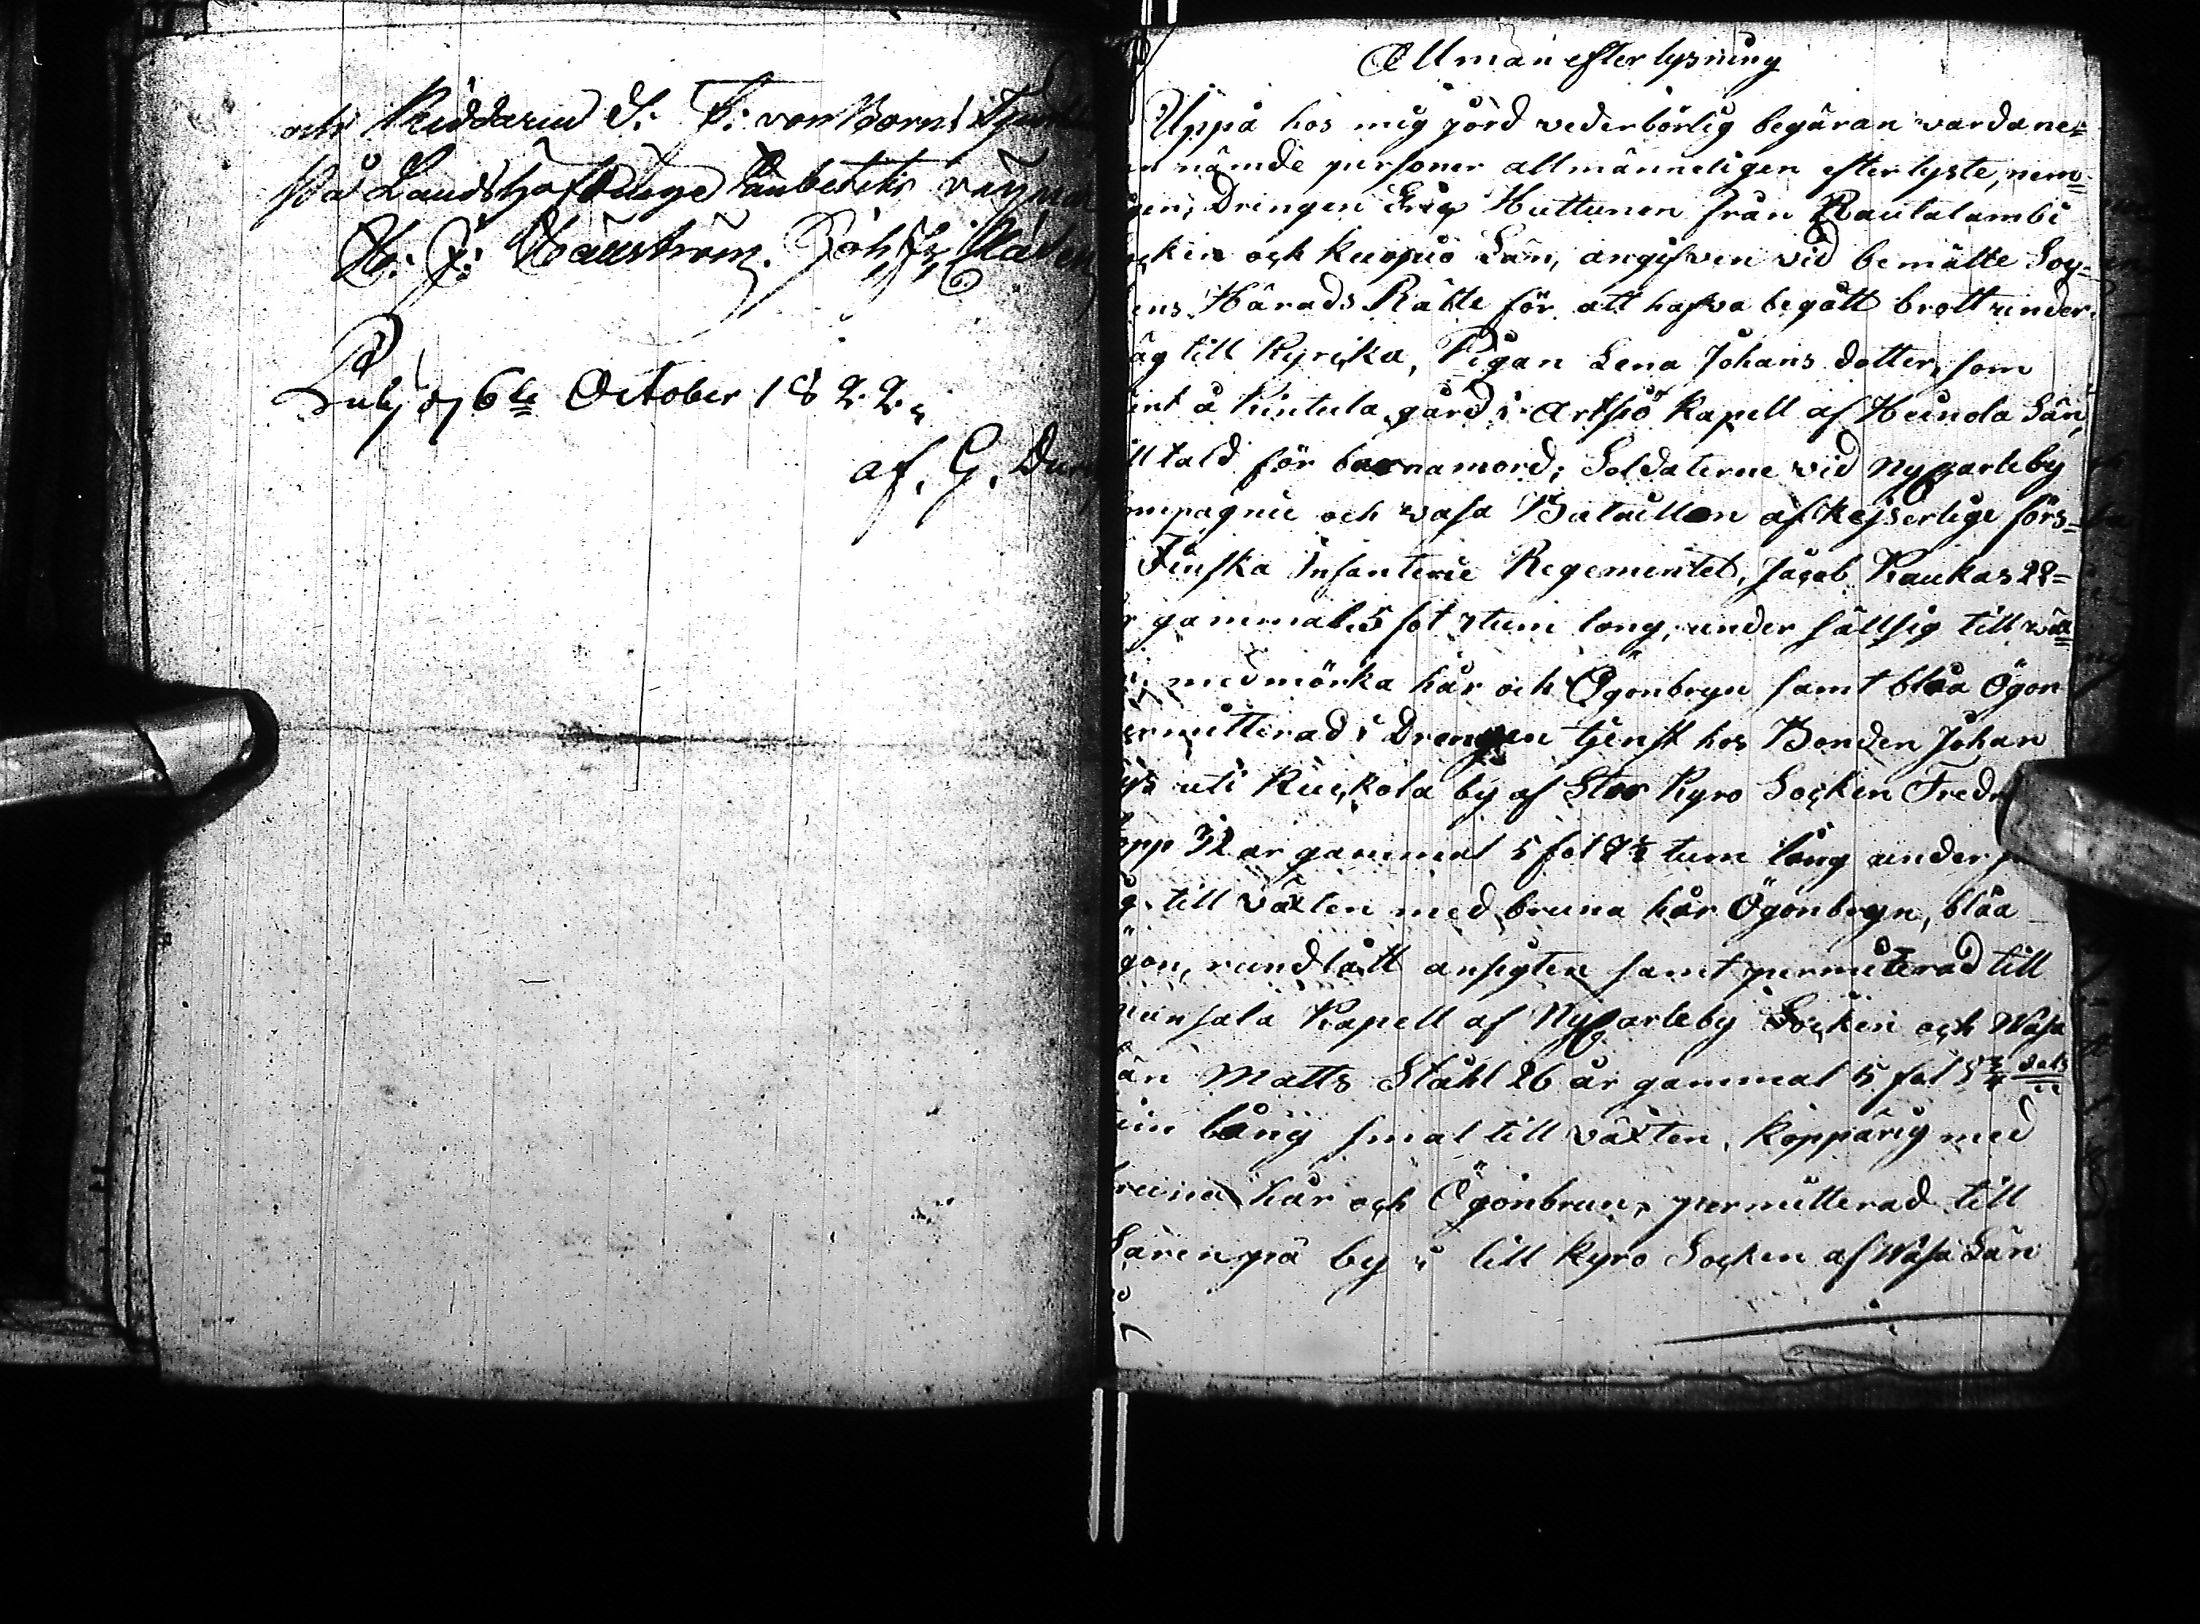 och Riddarens S: F: von Borns
På Landshöfdinge Embetets vägnar
H: J: Hällström. Joh: Fr:
Publ: d 6te October 1822,
af, G,
Allmän efterlysning
Uppå hos mig gjord vederbörlig begäran varda ne=
nämde personer allmänneligen efterlyste, nem=
Drengen Eric Huttunen från Rautalambi
och Kuopio Län, angifven vid bemälte Soc=
ens Härads Rätte för att hafva begått brott under
äg till Kyrcka, Pigan Lena Johans dotter, som
å Kintula gård i Artsjö Kapell af Heinola Län,
lltald för barnamord; Soldaterne vid Nycarleby
ompagnie och vasa Bataillon af Kejserlige förs=
Finska Infanterie Regementet, Jacob Raukas 22=
gammal 5 fot 7 tum long, undersättsig till väx=
med mörka hår och Ögonbryn samt blåa Ögon
ermitterad i Drengen tjenst hos Bonden Johan
uti Kuckola by af Stor Kyro Socken Fredr
opp 32 år gammal 5 fot 8½ tum lång under
g till växten med bruna hår Ögonbryn, blåa
gon, rundlätt ansigten samt permiterad till
unsala Kapell af Nycarleby Socken och Wasa
än Matts Ståhl 26 år gammal 5 fot 5¾ dels
um lång smal till växten, kopparig med
runa hår och Ögonbrun, permitterad till
Järenpä by i lill Kyro Socken af Wasa Län